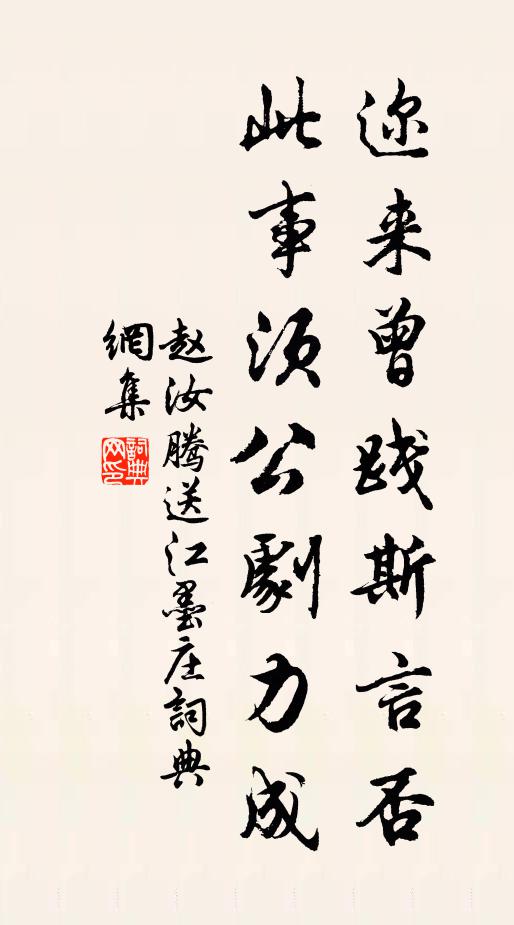 迩来曾践斯言否
此事须公劇力成
赵汝腾送江墨庄詞典
網集
詞典
网印